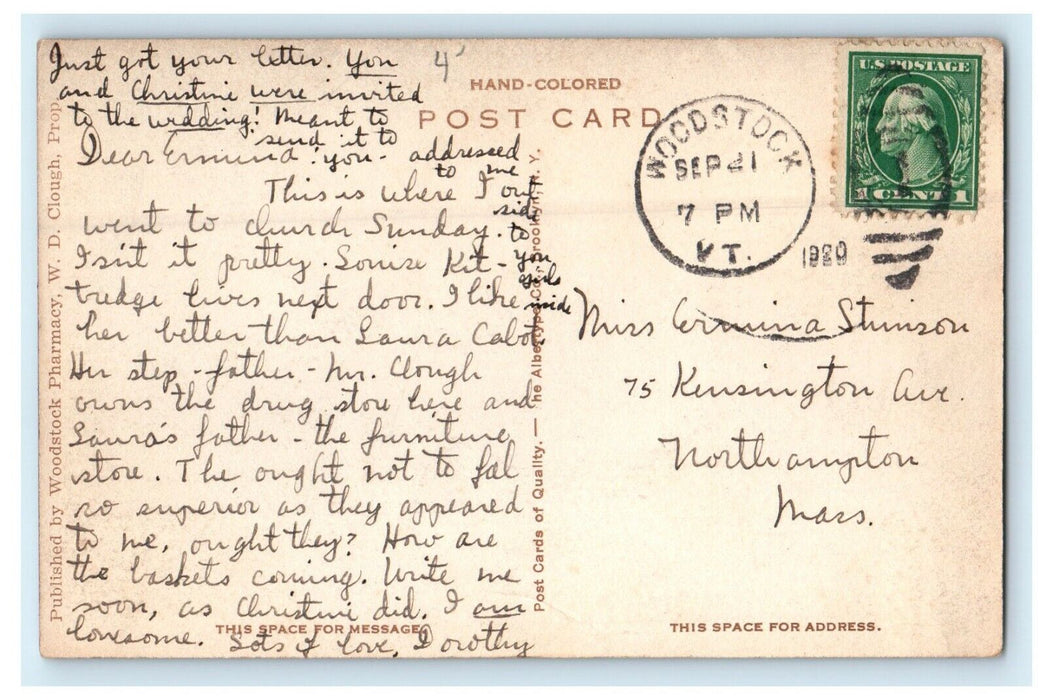 Just got your letter. You
and Christine were invited
to the wedding! Meant to
send it to
you - addressed
to me
out
side
to
you
girls
inside
4
Dear Ermina!
This is where I
went to church Sunday.
Isn't it pretty. Louise Kit-
tredge lives next door. I like
her better than Laura Cabot.
Her step-father - Mr. Clough
owns the drug store here and
Laura's father - the furniture
store. The ought not to feel
so superior as they appeared
to me, ought they? How are
the baskets coming. Write me
soon, as Christine did. I am
lonesome. Lots of love, Dorothy
HAND-COLORED
POST CARD
THIS SPACE FOR MESSAGE
Published by Woodstock Pharmacy, W. D. Clough, Prop
Post Cards of Quality. — The Albertype Co., Brooklyn, N. Y.
WOODSTOCK
SEP 21
7 PM
VT.
1920
U.S. POSTAGE
1 CENT 1
Miss Ermina Stimson
75 Kensington Ave.
Northampton
Mass.
THIS SPACE FOR ADDRESS.